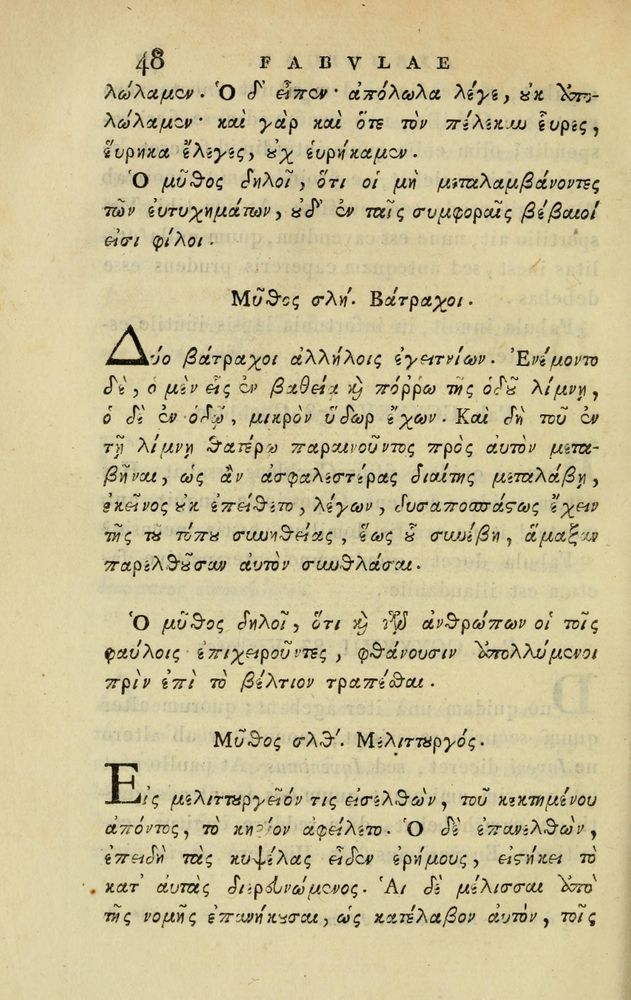 48 FABVLAE
λώλαμεν. Ὁ δ' εἶπεν· ἀπόλωλα λέγε, ȣ̓κ ἀπο-
λώλαμεν· καὶ γὰρ καὶ ὅτε τὸν πέλεκυν εὗρες,
εὕρηκα ἔλεγες, ȣ̓χ εὑρήκαμεν.
Ὁ μῦθος δηλοῖ, ὅτι οἱ μὴ μεταλαμβάνοντες
τῶν εὐτυχημάτων, ȣ̓δ' ἐν ταῖς συμφοραῖς βέβαιοί
εἰσι φίλοι.
Μῦθος σλή. Βάτραχοι.
Δύο βάτραχοι ἀλλήλοις ἐγειτνίων. Ἐνέμοντο
δὲ, ὁ μὲν εἷς ἐν βαθείᾳ ϗ πόῤῥω τῆς ὁδȣ͂ λίμνῃ,
ὁ δὲ ἐν ὁδῷ, μικρὸν ὕδωρ ἔχων. Καὶ δὴ τοῦ ἐν
τῇ λίμνῃ θατέρῳ παραινοῦντος πρὸς αὐτὸν μετα-
βῆναι, ὡς ἂν ἀσφαλεστέρας διαίτης μεταλάβῃ,
ἐκεῖνος ȣ̓κ ἐπείθετο, λέγων, δυσαποσπάστως ἔχειν
τῆς τȣ͂ τόπȣ συνηθείας, ἕως ȣ̔͂ συνέβη, ἅμαξαν
παρελθοῦσαν αὐτὸν συνθλάσαι.
Ὁ μῦθος δηλοῖ, ὅτι ϗ τῶν ἀνθρώπων οἱ τοῖς
φαύλοις ἐπιχειροῦντες, φθάνουσιν ἀπολλύμενοι
πρὶν ἐπὶ τὸ βέλτιον τραπέσθαι.
Μῦθος σλθ'. Μελιττȣργός.
Εἰς μελιττȣργεῖόν τις εἰσελθὼν, τοῦ κεκτημένου
ἀπόντος, τὸ κηρίον ἀφείλετο. Ὁ δὲ ἐπανελθὼν,
ἐπειδὴ τὰς κυψέλας εἶδεν ἐρήμους, εἱστήκει τὸ
κατ' αὐτὰς διερευνώμενος. Αἱ δὲ μέλισσαι ἀπὸ
τῆς νομῆς ἐπανήκȣσαι, ὡς κατέλαβον αὐτὸν, τοῖς